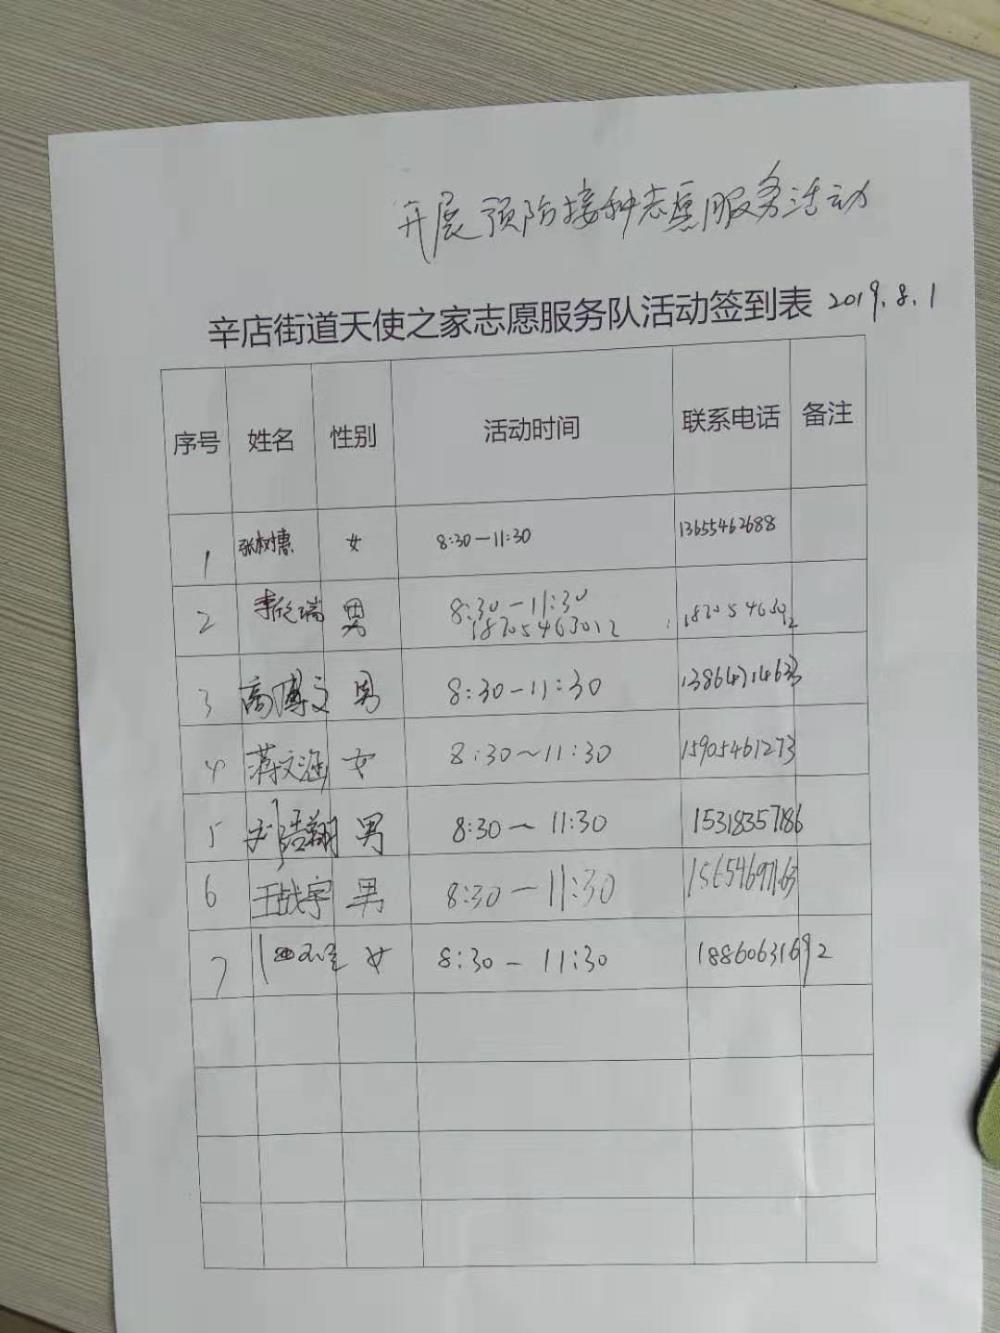 开展预防接种志愿服务活动
辛店街道天使之家志愿服务队活动签到表 2019.8.1
序号 姓名 性别 活动时间 联系电话 备注
1 张树惠 女 8:30-11:30 13655462688
2 李欣瑞 男 8:30-11:30
18705463012
3 高博文 男 8:30-11:30
4 蒋文涵 女 8:30~11:30 15905461273
5 刘浩翔 男 8:30-11:30 15318357186
6 王战宇 男 8:30-11:30 15654697163
7 女 8:30-11:30 18860631692